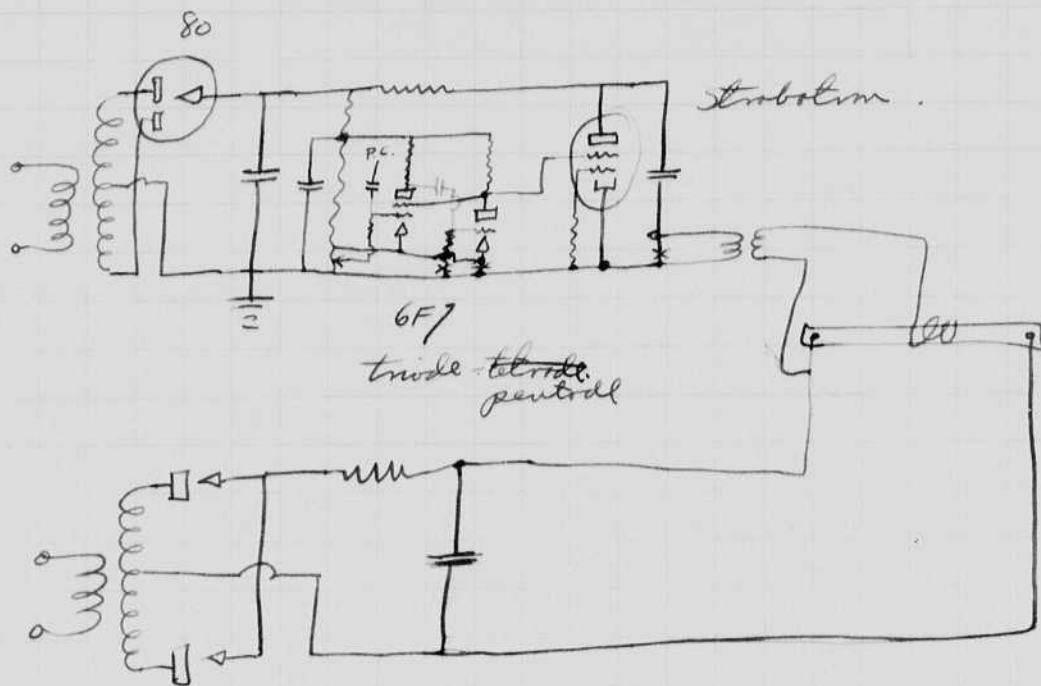 80
Strobotron.
P.C.
6F7
triode-tetrode.
pentode